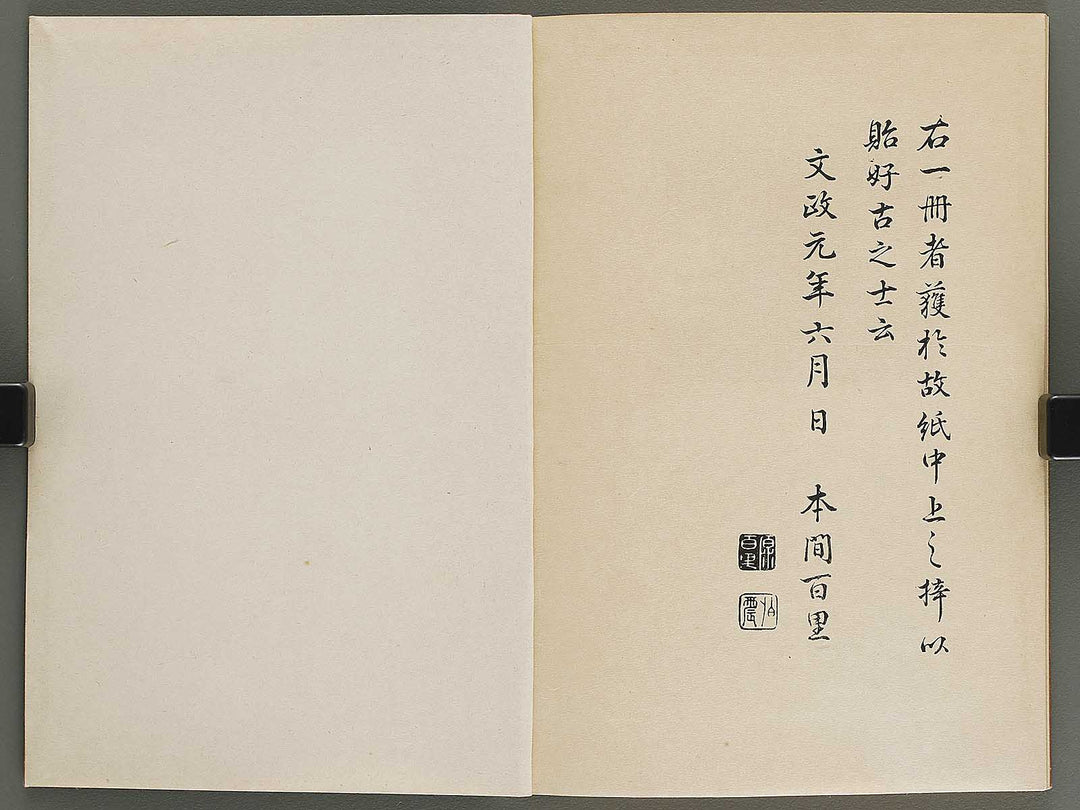 右一冊者獲於故紙中上之梓以
貽好古之士云
文政元年六月 日 本間百里